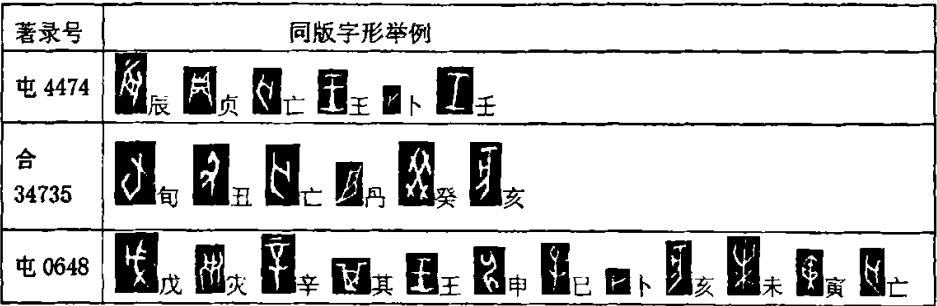 著录号 同版字形举例
屯 4474 辰 贞 亡 王 卜 壬
合 34735 旬 丑 亡 丹 癸 亥
屯 0648 戊 灾 辛 其 王 申 巳 卜 亥 未 寅 亡